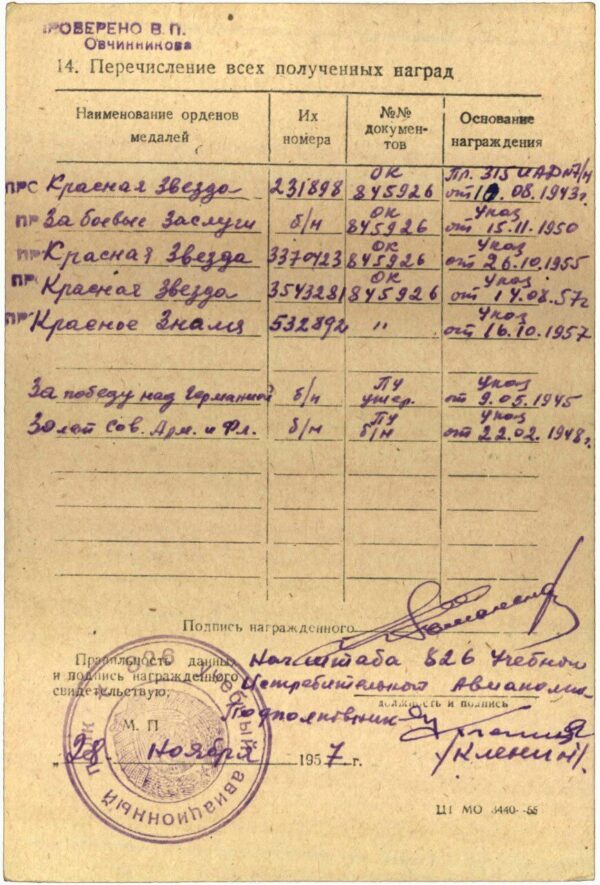 ПРОВЕРЕНО В.П.
Овчинникова
14. Перечисление всех полученных наград
Наименование орденов медалей | Их номера | №№ докумен-тов | Основание награждения
ПРС Красная Звезда 231898 ОК 845926 Пр. 315 ИАД от 19.08.1943г.
ПР За боевые Заслуги б/н ОК 845926 Указ от 15.11.1950
ПР Красная Звезда 3370423 ОК 845926 Указ от 26.10.1955
ПР Красная Звезда 3543281 ОК 845926 Указ от 14.08.57г
ПР Красное Знамя 532892 " Указ от 16.10.1957
За победу над Германией б/н ПУ утер. Указ от 9.05.1945
30 лет Сов. Арм. и Фл. б/н ПУ б/н Указ от 22.02.1948г.
Подпись награжденного
Правильность данных
и подпись награжденного
свидетельствую:
Нач штаба 826 Учебного
Истребительного Авиаполка
должность и подпись
Подполковник
М. П.
"28 Ноября 1957 г.
826 Учебный авиационный полк
ЦТ МО 3440--55